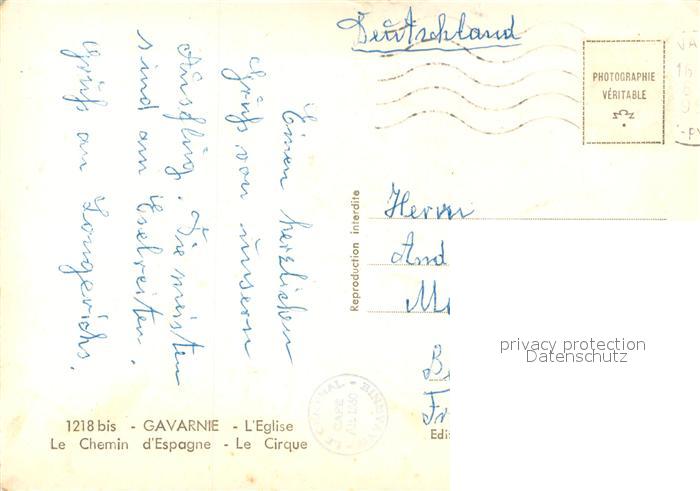 Deutschland
PHOTOGRAPHIE
VÉRITABLE
Einen herzlichen
Gruß von unserm
Ausflug. Die meisten
sind am Eselreiten.
Gruß an
Reproduction interdite
Herrn
And
privacy protection
Datenschutz
1218 bis - GAVARNIE - L'Eglise
Le Chemin d'Espagne - Le Cirque
Edi